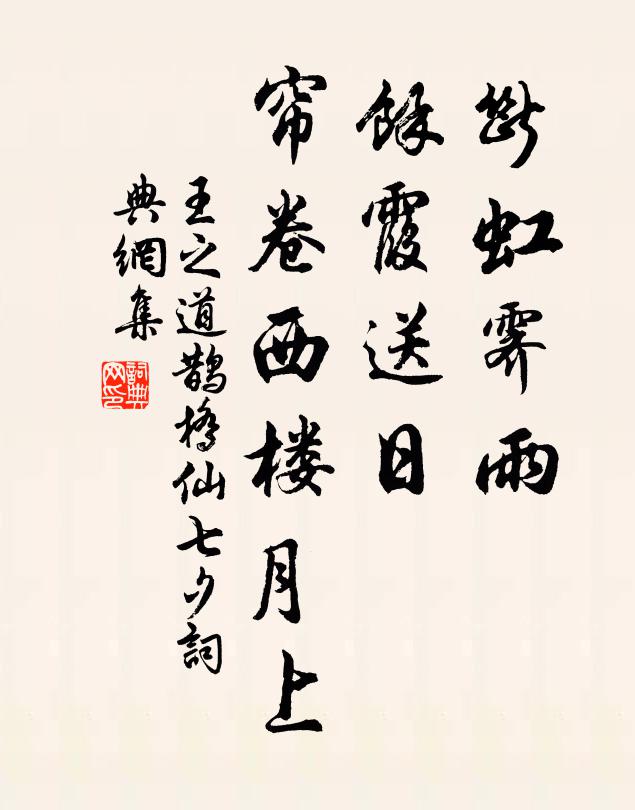 断虹霁雨
餘霞送日
帘卷西楼月上
王之道鹊橋仙七夕詞
典網集
詞典网印